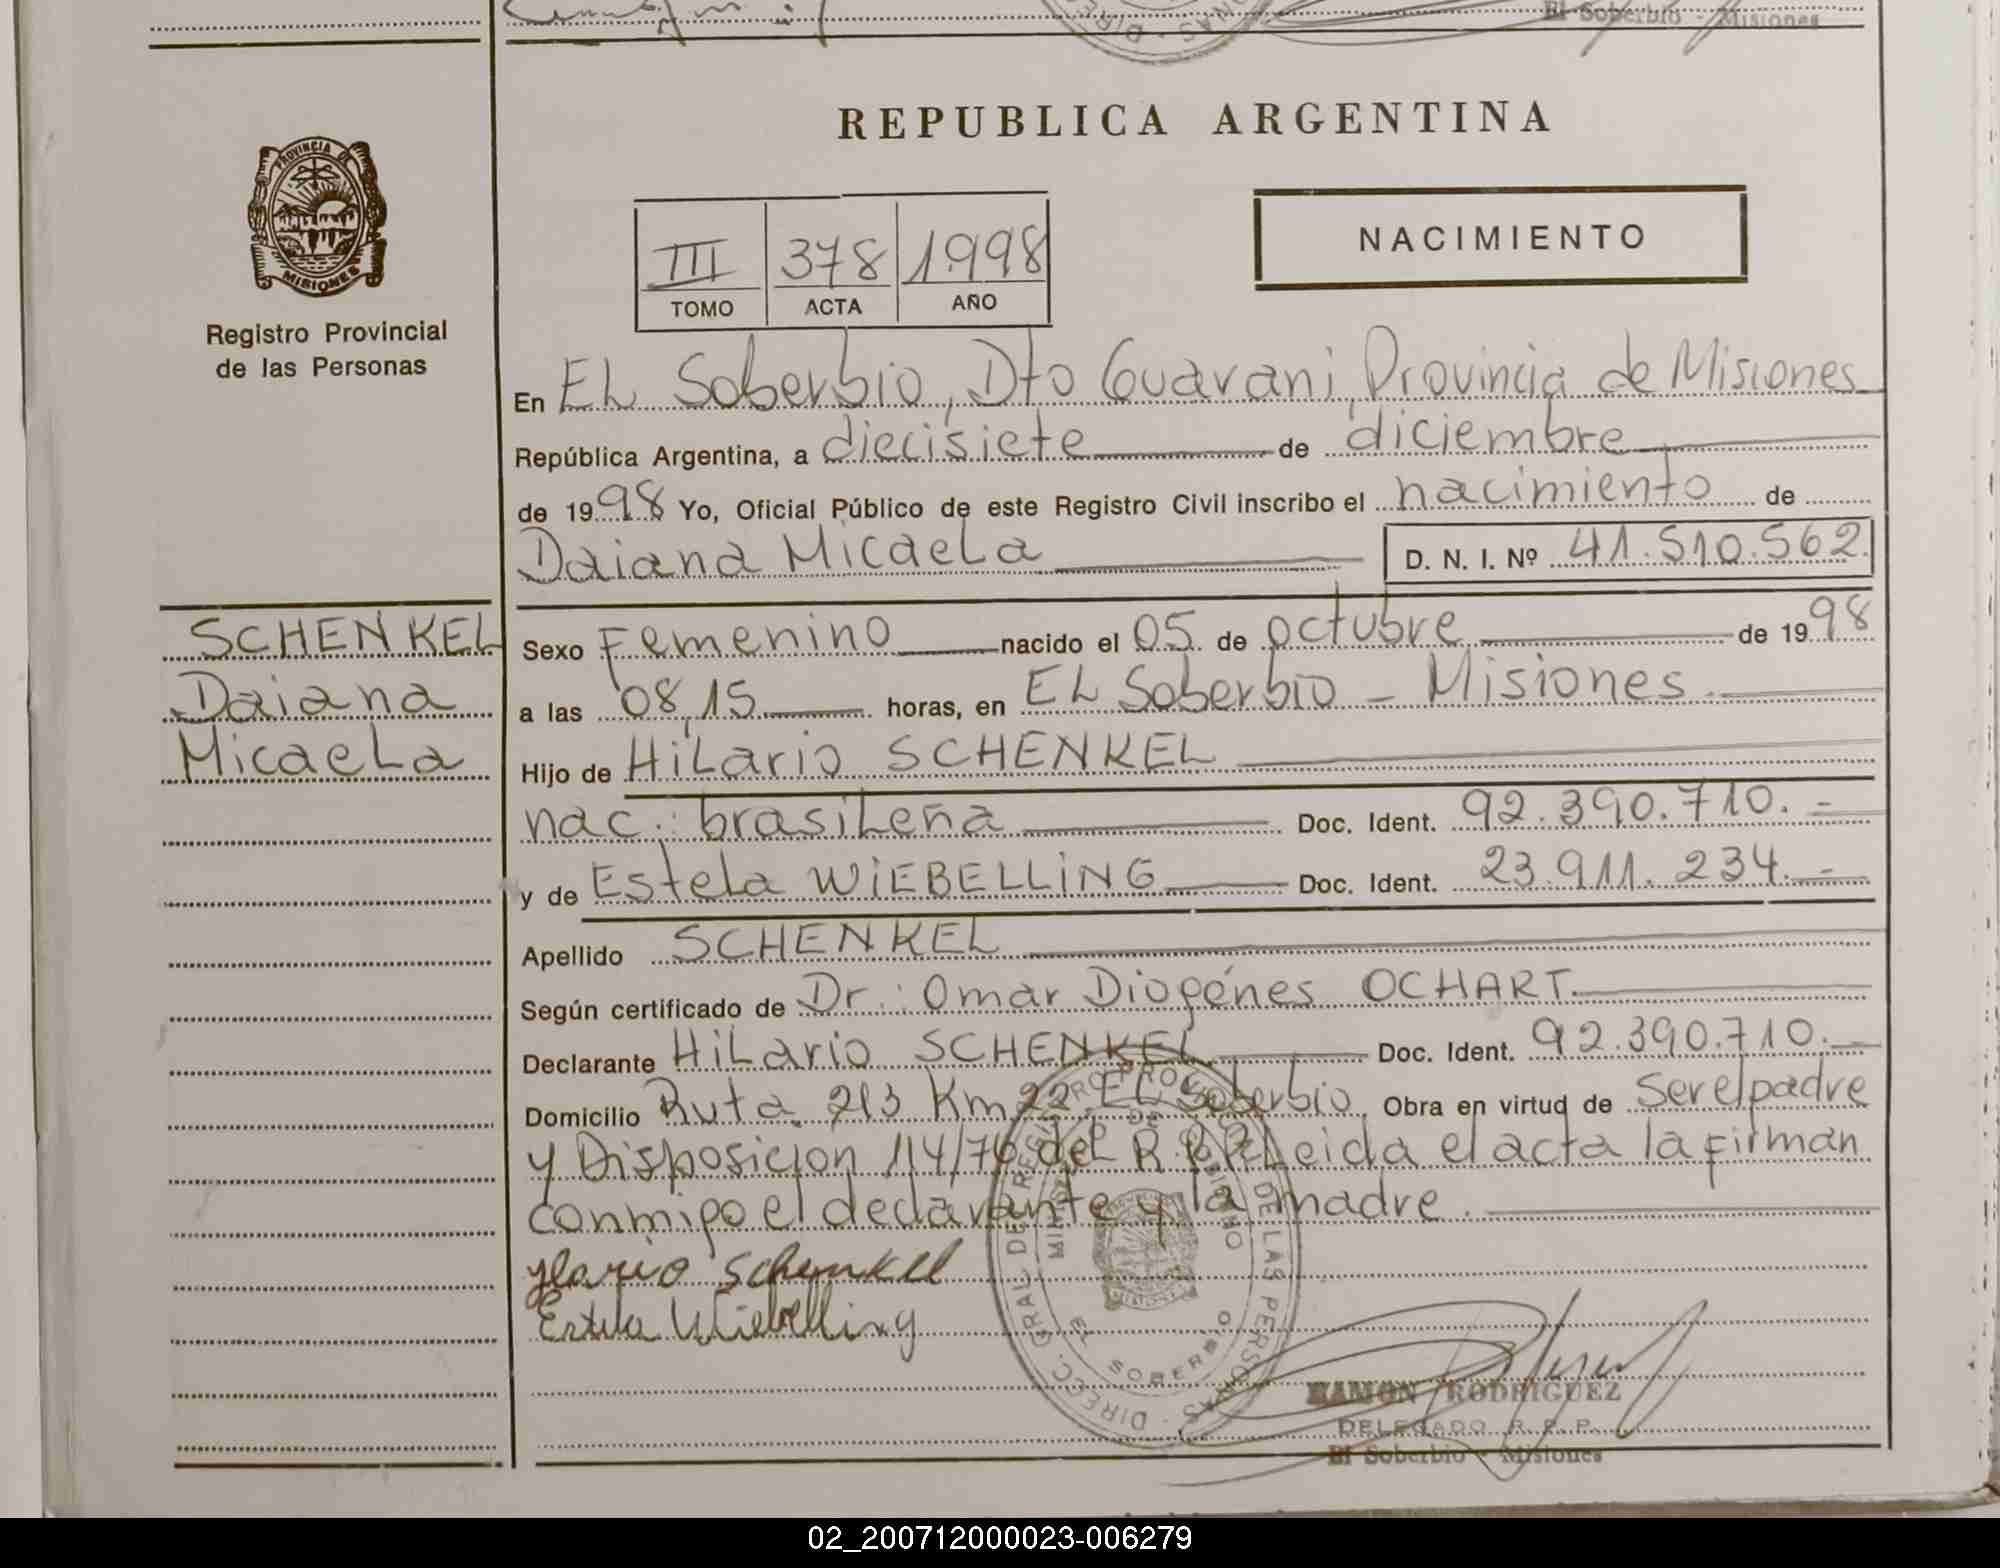 El Soberbio - Misiones
REPUBLICA ARGENTINA
PROVINCIA DE
MISIONES
Registro Provincial
de las Personas
III 378 1998
TOMO ACTA AÑO
NACIMIENTO
En EL Soberbio, Dto Guarani, Provincia de Misiones
República Argentina, a diecisiete de diciembre
de 1998 Yo, Oficial Público de este Registro Civil inscribo el nacimiento de
Daiana Micaela D. N. I. Nº 41.510.562.
SCHENKEL
Daiana
Micaela
Sexo Femenino nacido el 05 de octubre de 1998
a las 08,15 horas, en EL Soberbio - Misiones
Hijo de HiLario SCHENKEL
nac. brasiLeña Doc. Ident. 92.390.710.-
y de EsteLa WiEBELLiNG Doc. Ident. 23.911.234.-
Apellido SCHENKEL
Según certificado de Dr.: Omar Diogénes OCHART
Declarante HiLario SCHENKEL Doc. Ident. 92.390.710.-
Domicilio Ruta 213 Km 22 EL Soberbio, Obra en virtud de ser el padre
y Disposicion 114/76 del R.P.P. Leida el acta la firman
conmigo el declarante y la madre.
ylario Schenkel
Estela Wiebelling
DIREC. GRAL DE REGISTRO PROVINCIAL DE LAS PERSONAS
EL SOBERBIO
RAMON RODRIGUEZ
DELEGADO R. P. P.
El Soberbio - Misiones
02_200712000023-006279